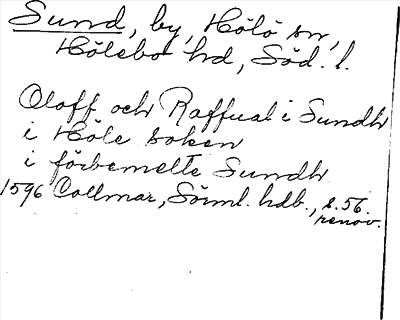 Sund, by, Hölö sn,
Hölebo hd, Söd. l.
Oloff och Raffual i Sundh
i Höle soken
i förbemelte Sundh
1596 Collmar, Sörml. hdb., s. 56.
renov.